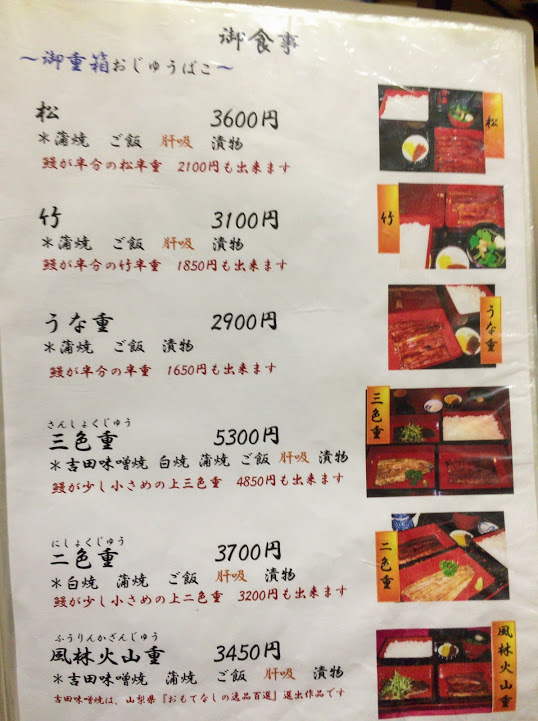 御食事
～御重箱おじゅうばこ～
松 3600円
＊蒲焼 ご飯 肝吸 漬物
鰻が半分の松半重 2100円も出来ます
松
竹 3100円
＊蒲焼 ご飯 肝吸 漬物
鰻が半分の竹半重 1850円も出来ます
竹
うな重 2900円
＊蒲焼 ご飯 漬物
鰻が半分の半重 1650円も出来ます
うな重
さんしょくじゅう
三色重 5300円
＊吉田味噌焼 白焼 蒲焼 ご飯 肝吸 漬物
鰻が少し小さめの上三色重 4850円も出来ます
三色重
にしょくじゅう
二色重 3700円
＊白焼 蒲焼 ご飯 肝吸 漬物
鰻が少し小さめの上二色重 3200円も出来ます
二色重
ふうりんかざんじゅう
風林火山重 3450円
＊吉田味噌焼 蒲焼 ご飯 肝吸 漬物
吉田味噌焼は、山梨県『おもてなしの逸品百選』選出作品です
風林火山重